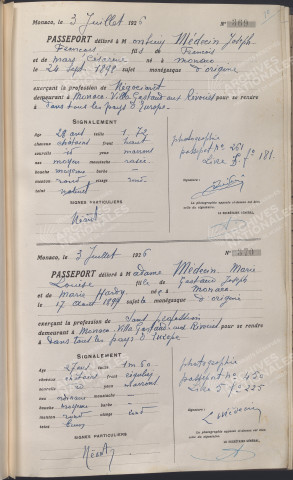 Monaco, le 3 Juillet 1926
N° 269
PASSEPORT délivré à Monsieur Médecin Joseph
François fils de François
et de né à Monaco
le 24 sept. 1898 sujet monégasque d'origine
exerçant la profession de Négociant
demeurant à Monaco, Villa Gastaud aux Révoires pour se rendre
à Dans tous les pays d'Europe.
SIGNALEMENT
Age taille 1,72
cheveux châtains front haut
sourcils id yeux marrons
nez moyen moustache rasée
bouche moyenne barbe —
menton rond visage rond
teint naturel
SIGNES PARTICULIERS
Néant
photographie
passeport n° 261
Livre 5 f° 181.
Signature :
La photographie appose ci-contre est bien
celle du signataire.
LE SECRÉTAIRE GÉNÉRAL,
Monaco, le 3 Juillet 1926
N° 270
PASSEPORT délivré à Madame Médecin Marie
Louise fille de Gastaud Joseph
et de Marie Monaco
le 17 août 1899 sujette monégasque d'origine
exerçant la profession de Sans profession
demeurant à Monaco, Villa Gastaud aux Révoires pour se rendre
à Dans tous les pays d'Europe
SIGNALEMENT
Age taille 1m 60
cheveux châtains front régulier
sourcils id yeux marrons
nez moustache —
bouche moyenne barbe —
menton rond visage rond
teint
SIGNES PARTICULIERS
Néant
photographie
passeport n° 456
Livre 5 f° 225
Signature :
L. Médecin
La photographie appose ci-contre est bien
celle du signataire.
LE SECRÉTAIRE GÉNÉRAL,